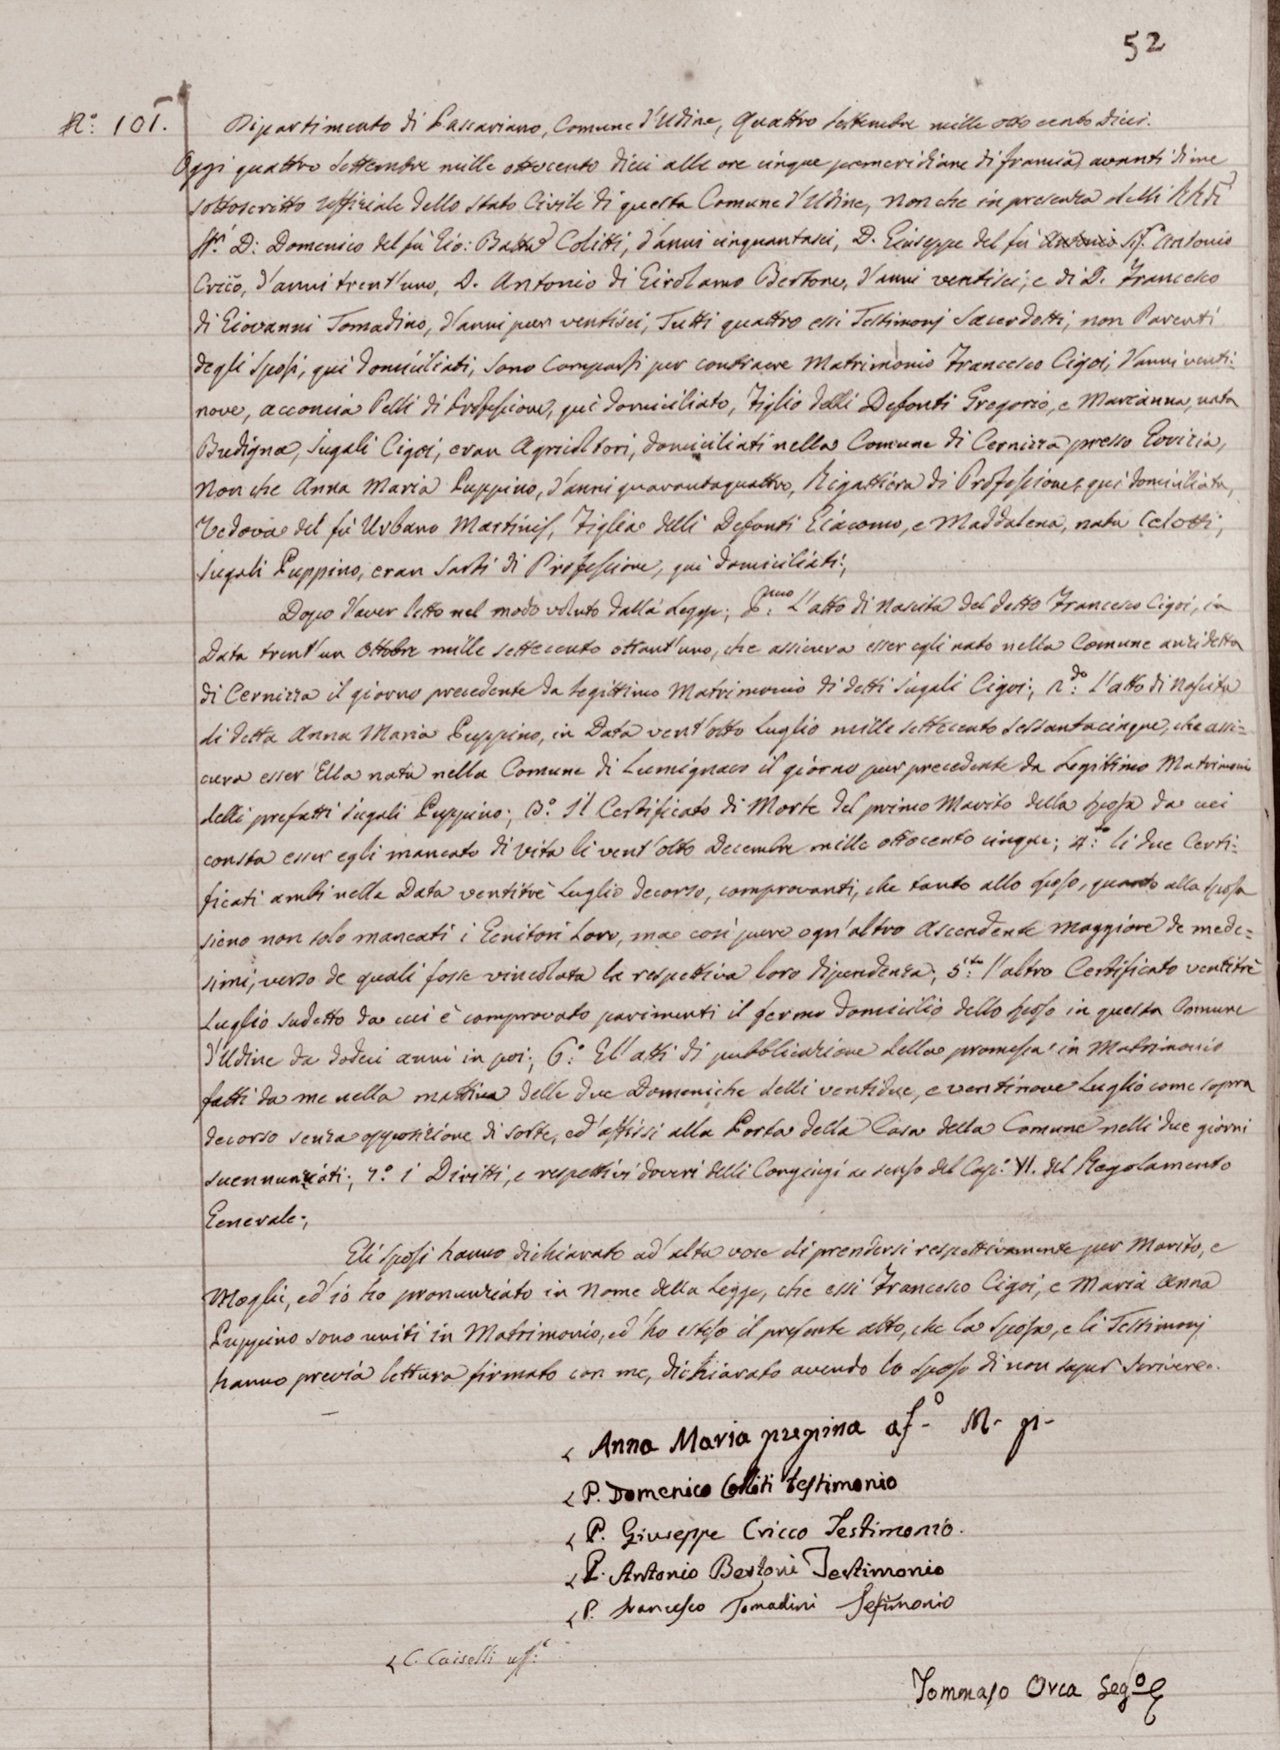 52
N.º 101.
Dipartimento di Passariano, Comune d'Udine, quattro Settembre mille otto cento dieci.
Oggi quattro Settembre mille ottocento dieci alle ore cinque pomeridiane di francia, avanti di me
sottoscritto uffiziale dello stato Civile di questa Comune d'Udine, non che in presenza delli
D: Domenico del fù Gio: Batta Colitti, d'anni cinquantasei, D. Giuseppe del fù Antonio
Cricco, d'anni trent'uno, D. Antonio di Girolamo Bertone, d'anni ventisei; e di D. Francesco
di Giovanni Tomadino, d'anni pur ventisei, Tutti quattro essi Testimonj Sacerdotti, non Parenti
degli Sposi, quì domiciliati, sono comparsi per contraere Matrimonio Francesco Cigoi, d'anni venti:
nove, acconcia Pelli di Professione, quì domiciliato, Figlio delli Defonti Gregorio, e Marianna, nata
Budigna, Jugali Cigoi, eran Agricoltori, domiciliati nella Comune di Cernizza presso Gorizia,
Non che Anna Maria Puppino, d'anni quarantaquattro, Rigattiera di Professione, quì domiciliata,
Vedova del fù Urbano Martinis, Figlia delli Defonti Giacomo, e Maddalena, nata Celotti,
Jugali Puppino, eran Sarti di Professione, quì domiciliati;
Dopo d'aver letto nel modo voluto dalla Legge; P.mo L'atto di Nascita del detto Francesco Cigoi, in
Data trent'un Ottobre mille settecento ottant'uno, che assicura esser egli nato nella Comune anzidetta
di Cernizza il giorno precedente da legittimo Matrimonio di detti Jugali Cigoi; 2.do L'atto di Nascita
di detta Anna Maria Puppino, in Data vent'otto Luglio mille settecento sessantacinque, che assi=
cura esser Ella nata nella Comune di Lumignaco il giorno pur precedente da Legittimo Matrimonio
delli prefatti Jugali Puppino; 3.º Il Certificato di Morte del primo Marito della Sposa da cui
consta esser egli mancato di vita li vent'otto Decembre mille ottocento cinque; 4.to li due Certi:
ficati ambi nella Data ventitrè Luglio decorso, comprovanti, che tanto allo Sposo, quanto alla Sposa
sieno non solo mancati i Genitori Loro, ma così pure ogn'altro Ascendente Maggiore de mede=
simi, verso de quali fosse vincolata la respettiva loro dipendenza; 5.to l'altro Certificato ventitrè
Luglio sudetto da cui è comprovato parimenti il fermo domicilio dello Sposo in questa Comune
d'Udine da dodeci anni in poi; 6.º Gl'atti di pubblicazione della promessa in Matrimonio
fatti da me nella mattina delle due Domeniche delli ventidue, e ventinove Luglio come sopra
decorso senza opposizione di sorte, ed affissi alla Porta della Casa della Comune nelli due giorni
suennunziati; 7.º i Diritti, e respettivi doveri delli Congiugi a senso del Cap.º VI. del Regolamento
Generale;
Gli Sposi hanno dichiarato ad alta voce di prendersi respettivamente per Marito, e
Moglie, ed io ho pronunziato in Nome della Legge, che essi Francesco Cigoi, e Maria Anna
Puppino sono uniti in Matrimonio, ed ho esteso il presente atto, che la Sposa, e li Testimonj
hanno previa lettura firmato con me, dichiarato avendo lo Sposo di non saper scrivere.
Anna Maria pupina af.º M. p.
P. Domenico Colliti testimonio
P. Giuseppe Cricco Testimonio.
P. Antonio Bertoni Testimonio
P. Francesco Tomadini Testimonio
C. Caiselli uff.e
Tommaso Orca Seg.º